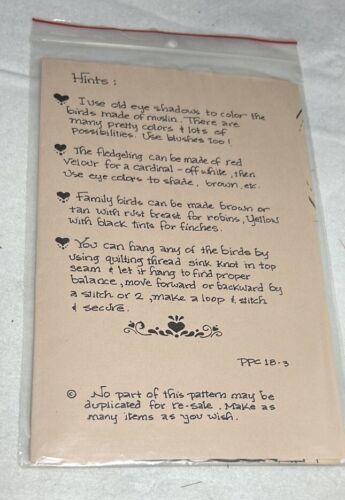 Hints :
I use old eye shadows to color the
birds made of muslin. There are
many pretty colors & lots of
possibilities. Use blushes too!
The fledgeling can be made of red
velour for a cardinal - off white, then
use eye colors to shade, brown, etc.
Family birds can be made brown or
tan with rust breast for robins, yellow
with black tints for finches.
You can hang any of the birds by
using quilting thread sink knot in top
seam & let it hang to find proper
balance, move forward or backward by
a stitch or 2, make a loop & stitch
& secure.
PPC 18-3
© No part of this pattern may be
duplicated for re-sale. Make as
many items as you wish.